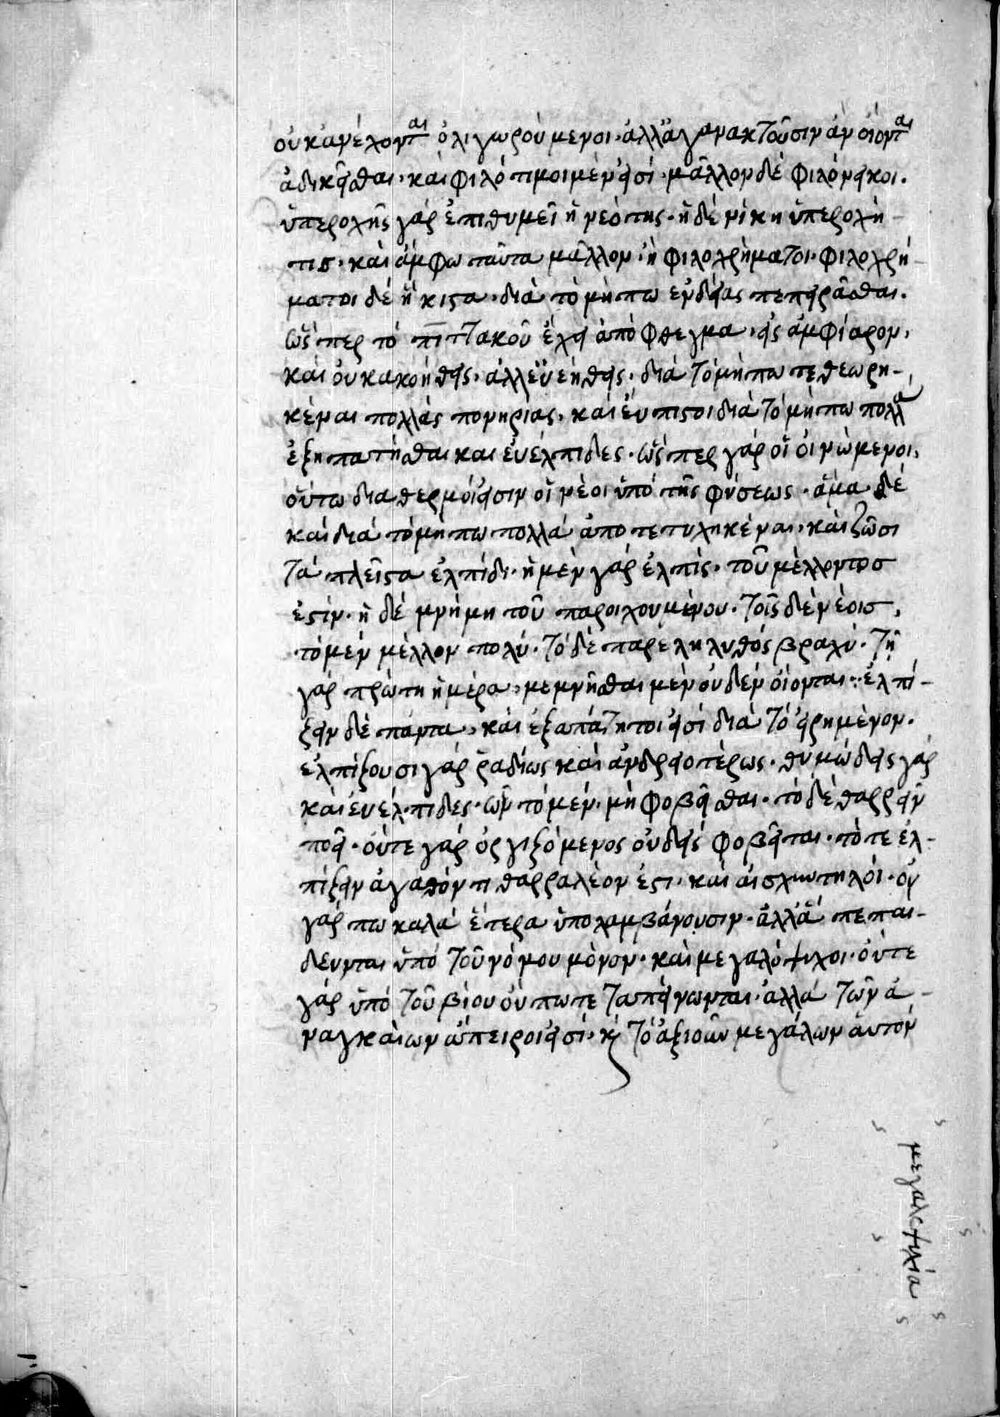 οὐκ ἀνέχονται ὀλιγωρούμενοι· ἀλλ' ἀγανακτοῦσιν ἂν οἴονται
ἀδικεῖσθαι· καὶ φιλότιμοι μέν εἰσί· μᾶλλον δὲ φιλόνεικοι·
ὑπεροχῆς γὰρ ἐπιθυμεῖ ἡ νεότης· ἡ δὲ νίκη ὑπεροχή
τις· καὶ ἄμφω ταῦτα μᾶλλον· ἢ φιλοχρήματοι· φιλοχρή-
ματοι δὲ ἥκιστα· διὰ τὸ μήπω ἐνδείας πεπειρᾶσθαι·
ὥσπερ τὸ πιττακοῦ ἔχει ἀπόφθεγμα· εἰς ἀμφιάραον·
καὶ οὐ κακοήθεις· ἀλλ' εὐήθεις· διὰ τὸ μήπω τεθεωρη-
κέναι πολλὰς πονηρίας· καὶ εὔπιστοι διὰ τὸ μήπω πολλὰ
ἐξηπατῆσθαι καὶ εὐέλπιδες· ὥσπερ γὰρ οἱ οἰνώμενοι·
οὕτω διάθερμοί εἰσιν οἱ νέοι ὑπὸ τῆς φύσεως· ἅμα δὲ
καὶ διὰ τὸ μήπω πολλὰ ἀποτετυχηκέναι· καὶ ζῶσι
τὰ πλεῖστα ἐλπίδι· ἡ μὲν γὰρ ἐλπὶς· τοῦ μέλλοντος
ἐστίν· ἡ δὲ μνήμη τοῦ παροιχουμένου· τοῖς δὲ νέοις·
τὸ μὲν μέλλον πολύ· τὸ δὲ παρεληλυθὸς βραχύ· τῇ
γὰρ πρώτῃ ἡμέρα· μεμνῆσθαι μὲν οὐδὲν οἴονται· ἐλπί-
ζειν δὲ πάντα· καὶ ἐξαπάτητοι εἰσὶ διὰ τὸ εἰρημένον·
ἐλπίζουσι γὰρ ῥαδίως καὶ ἀνδρειοτέρως· θυμώδεις γὰρ
καὶ εὐέλπιδες· ὧν τὸ μὲν· μὴ φοβεῖσθαι· τὸ δὲ θαρρεῖν
ποιεῖ· οὔτε γὰρ ὀργιζόμενος οὐδεὶς φοβεῖται· τό τε ἐλ-
πίζειν ἀγαθόν τι θαρραλέον ἐστι· καὶ αἰσχυντηλοί· οὐ
γάρ πω καλὰ ἕτερα ὑπολαμβάνουσιν· ἀλλὰ πεπαί-
δευνται ὑπὸ τοῦ νόμου μόνον· καὶ μεγαλόψυχοι· οὔτε
γὰρ ὑπὸ τοῦ βίου οὔπω τεταπείνωνται· ἀλλὰ τῶν ἀ-
ναγκαίων ἄπειροι εἰσί· κ τὸ ἀξιοῦν μεγάλων αὑτὸν
μεγαλοψυχία